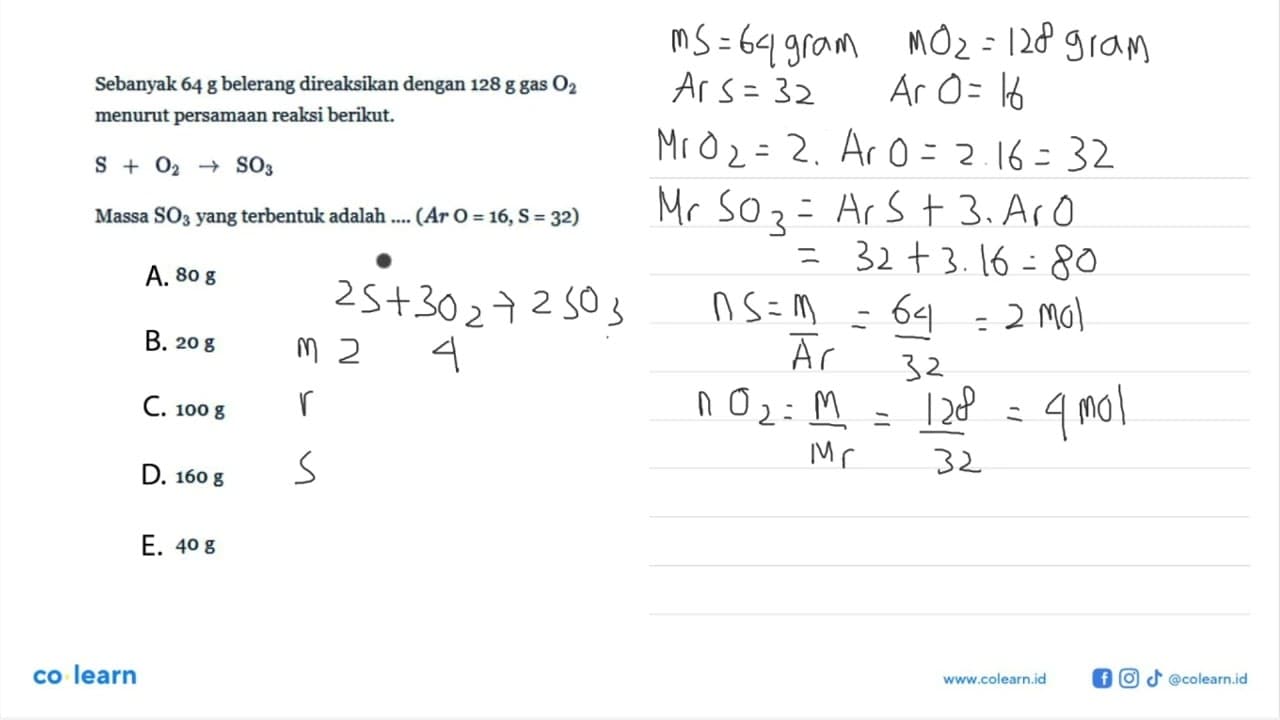 Sebanyak 64 g belerang direaksikan dengan 128 g gas O₂
menurut persamaan reaksi berikut.
S + O₂ → SO₃
Massa SO₃ yang terbentuk adalah .... (Ar O = 16, S = 32)
A. 80 g
B. 20 g
C. 100 g
D. 160 g
E. 40 g
2S+3O₂→2SO₃
m 2 4
r
s
mS=64 gram mO₂=128 gram
Ar S=32 Ar O=16
Mr O₂=2. Ar O=2.16=32
Mr SO₃=Ar S+3.Ar O
= 32+3.16=80
nS=m/Ar = 64/32 = 2 mol
nO₂=m/Mr = 128/32 = 4 mol
co learn
www.colearn.id
@colearn.id